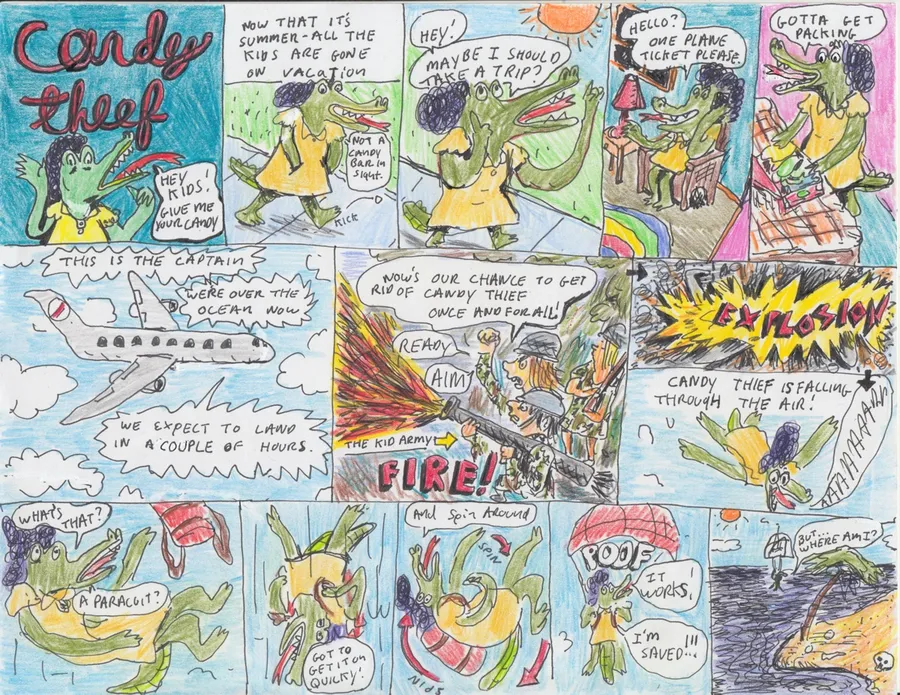 Candy
theef
HEY
KIDS!
GIVE ME
YOUR CANDY
NOW THAT IT'S
SUMMER-ALL THE
KIDS ARE GONE
ON VACATION
NOT A
CANDY
BAR IN
SIGHT.
Rick
HEY!
MAYBE I SHOULD
TAKE A TRIP?
HELLO?
ONE PLANE
TICKET PLEASE.
GOTTA GET
PACKING
THIS IS THE CAPTAIN
WE'RE OVER THE
OCEAN NOW
WE EXPECT TO LAND
IN A COUPLE OF HOURS.
NOW'S OUR CHANCE TO GET
RID OF CANDY THIEF
ONCE AND FOR ALL!
READY
AIM
THE KID ARMY
FIRE!
EXPLOSION
CANDY THIEF IS FALLING
THROUGH THE AIR!
AAAAAAAAAH
WHAT'S
THAT?
A PARACUIT?
GOT TO
GET IT ON
QUICKY!
And Spin Around
SPIN
POOF
IT
WORKS!
I'M
SAVED...!!!
BUT...
WHERE AM I?